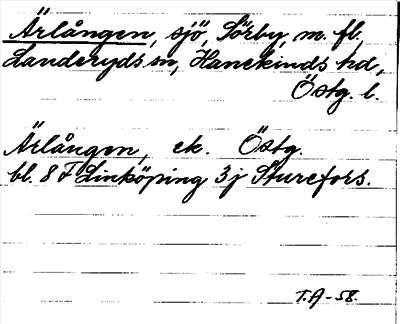 Ärlången, sjö, Sörby, m. fl.
Landeryds sn, Hanekinds hd,
Östg. l.
Ärlången, ek. Östg.
bl. 8 F Linköping 3j Sturefors.
T.A-58.